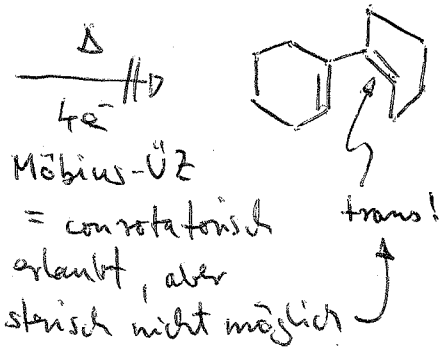 Δ
4e⁻
Möbius-ÜZ
= conrotatorisch
erlaubt, aber
sterisch nicht möglich
trans!